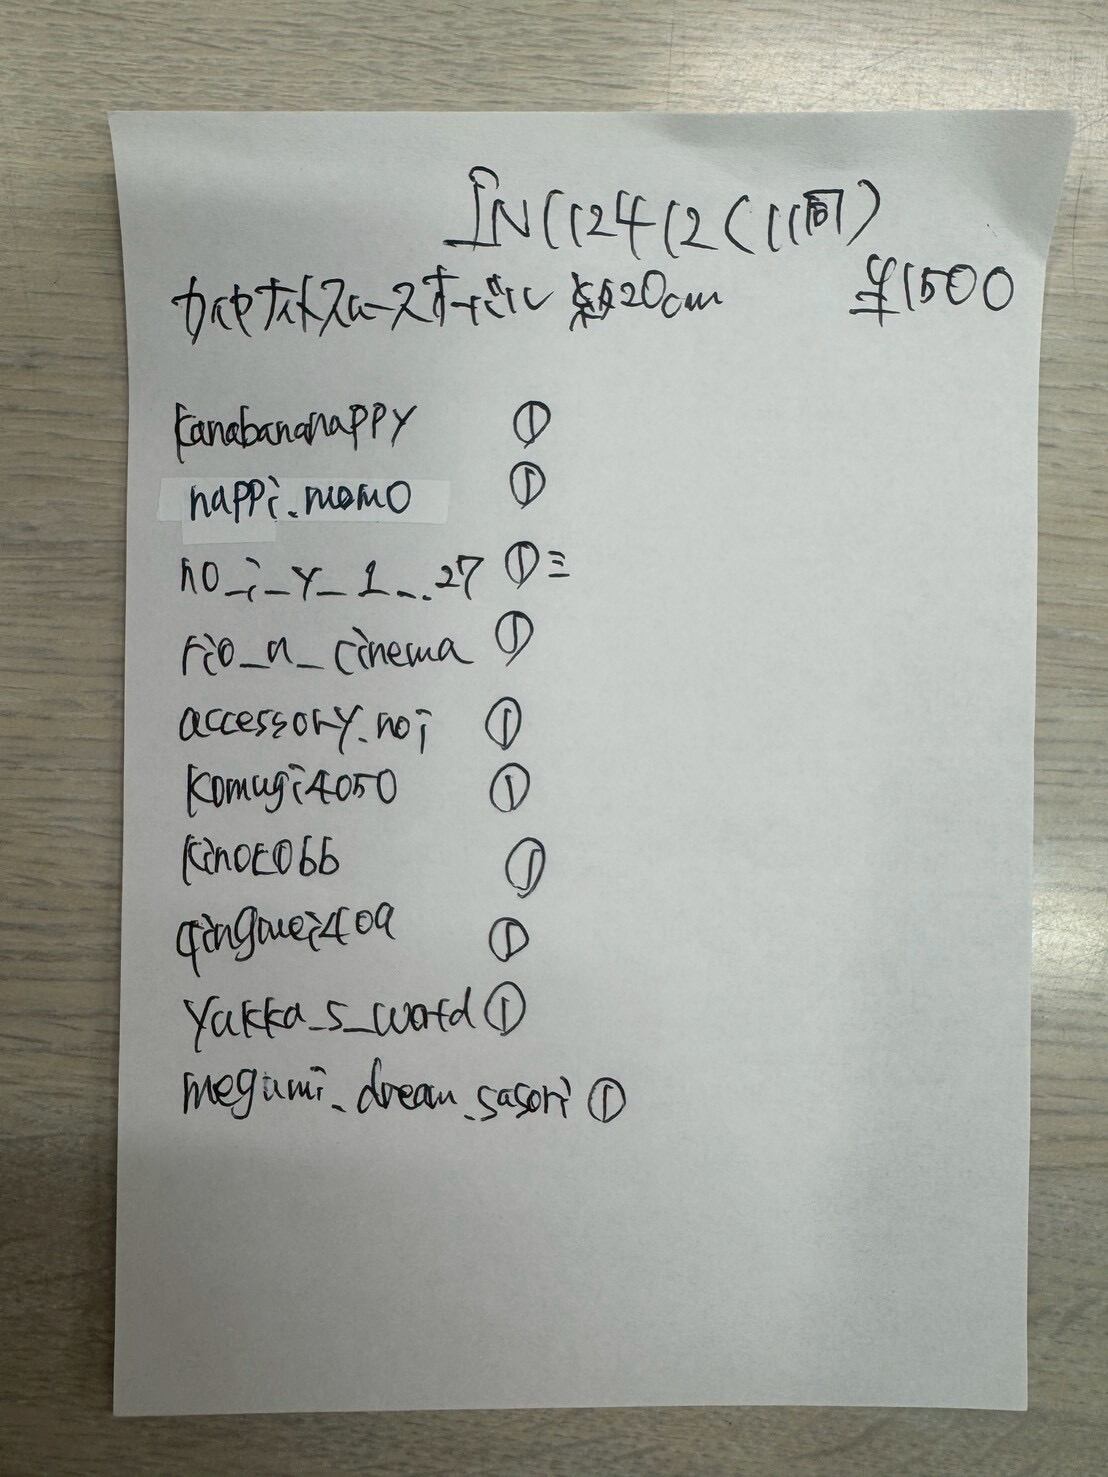 IN112412(11同)
カイヤナイトスムースオーバル 約20cm ¥1500
kanabananappy ①
nappi.momo ①
no_i_y_1_..27 ①三
rio_a_cinema ①
accessory.noi ①
komugi4050 ①
kinoco66 ①
qingmei409 ①
yukka_s_world ①
megumi.dream.sasori ①